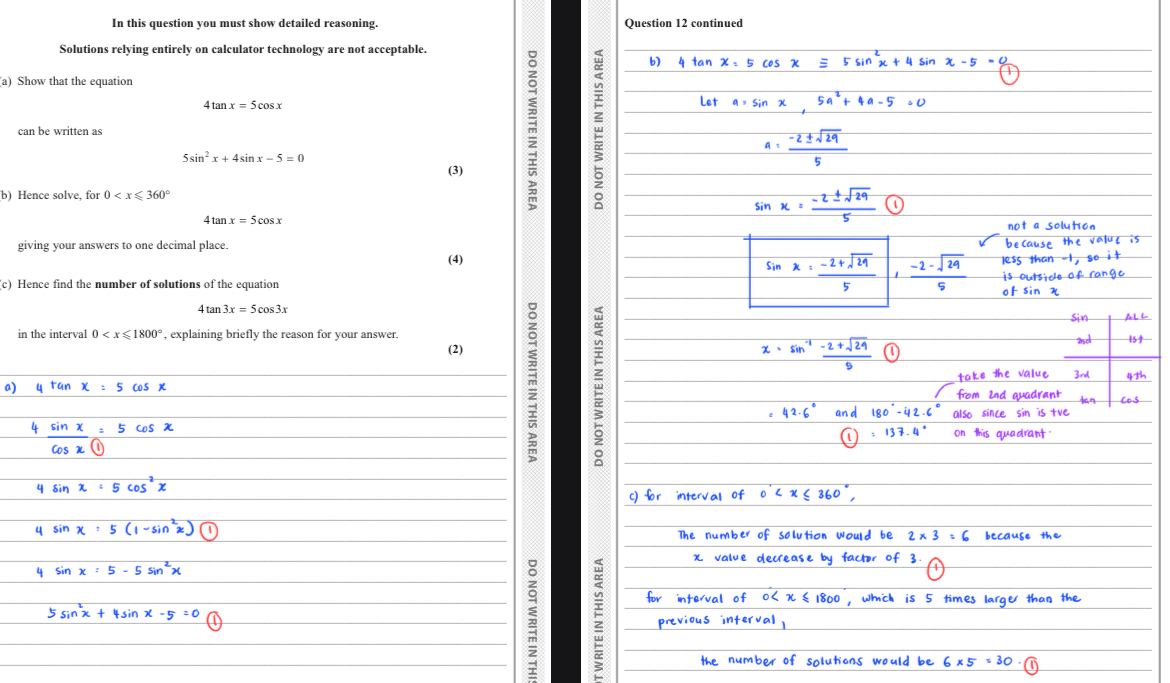 In this question you must show detailed reasoning.
Solutions relying entirely on calculator technology are not acceptable.
(a) Show that the equation
4 tan x = 5 cos x
can be written as
5 sin² x + 4 sin x − 5 = 0
(3)
(b) Hence solve, for 0 < x ⩽ 360°
4 tan x = 5 cos x
giving your answers to one decimal place.
(4)
(c) Hence find the number of solutions of the equation
4 tan 3x = 5 cos 3x
in the interval 0 < x ⩽ 1800°, explaining briefly the reason for your answer.
(2)
a) 4 tan x = 5 cos x
4 sin x / cos x = 5 cos x ①
4 sin x = 5 cos² x
4 sin x = 5 (1 - sin² x) ①
4 sin x = 5 - 5 sin² x
5 sin² x + 4 sin x - 5 = 0 ①
DO NOT WRITE IN THIS AREA
DO NOT WRITE IN THIS AREA
DO NOT WRITE IN THIS
DO NOT WRITE IN THIS AREA
DO NOT WRITE IN THIS AREA
T WRITE IN THIS AREA
Question 12 continued
b) 4 tan x = 5 cos x ≡ 5 sin² x + 4 sin x - 5 = 0 ①
Let a = sin x , 5a² + 4a - 5 = 0
a = -2 ± √29 / 5
sin x = -2 ± √29 / 5 ①
sin x = -2 + √29 / 5 , -2 - √29 / 5
not a solution
because the value is
less than -1, so it
is outside of range
of sin x
x = sin⁻¹ -2 + √29 / 5 ①
Sin ALL
2nd 1st
3rd 4th
tan cos
take the value
from 2nd quadrant
also since sin is +ve
on this quadrant.
= 42.6° and 180° - 42.6°
① = 137.4°
c) for interval of 0° < x ≤ 360°,
The number of solution would be 2 x 3 = 6 because the
x value decrease by factor of 3. ①
for interval of 0° < x ≤ 1800°, which is 5 times larger than the
previous interval,
the number of solutions would be 6 x 5 = 30. ①